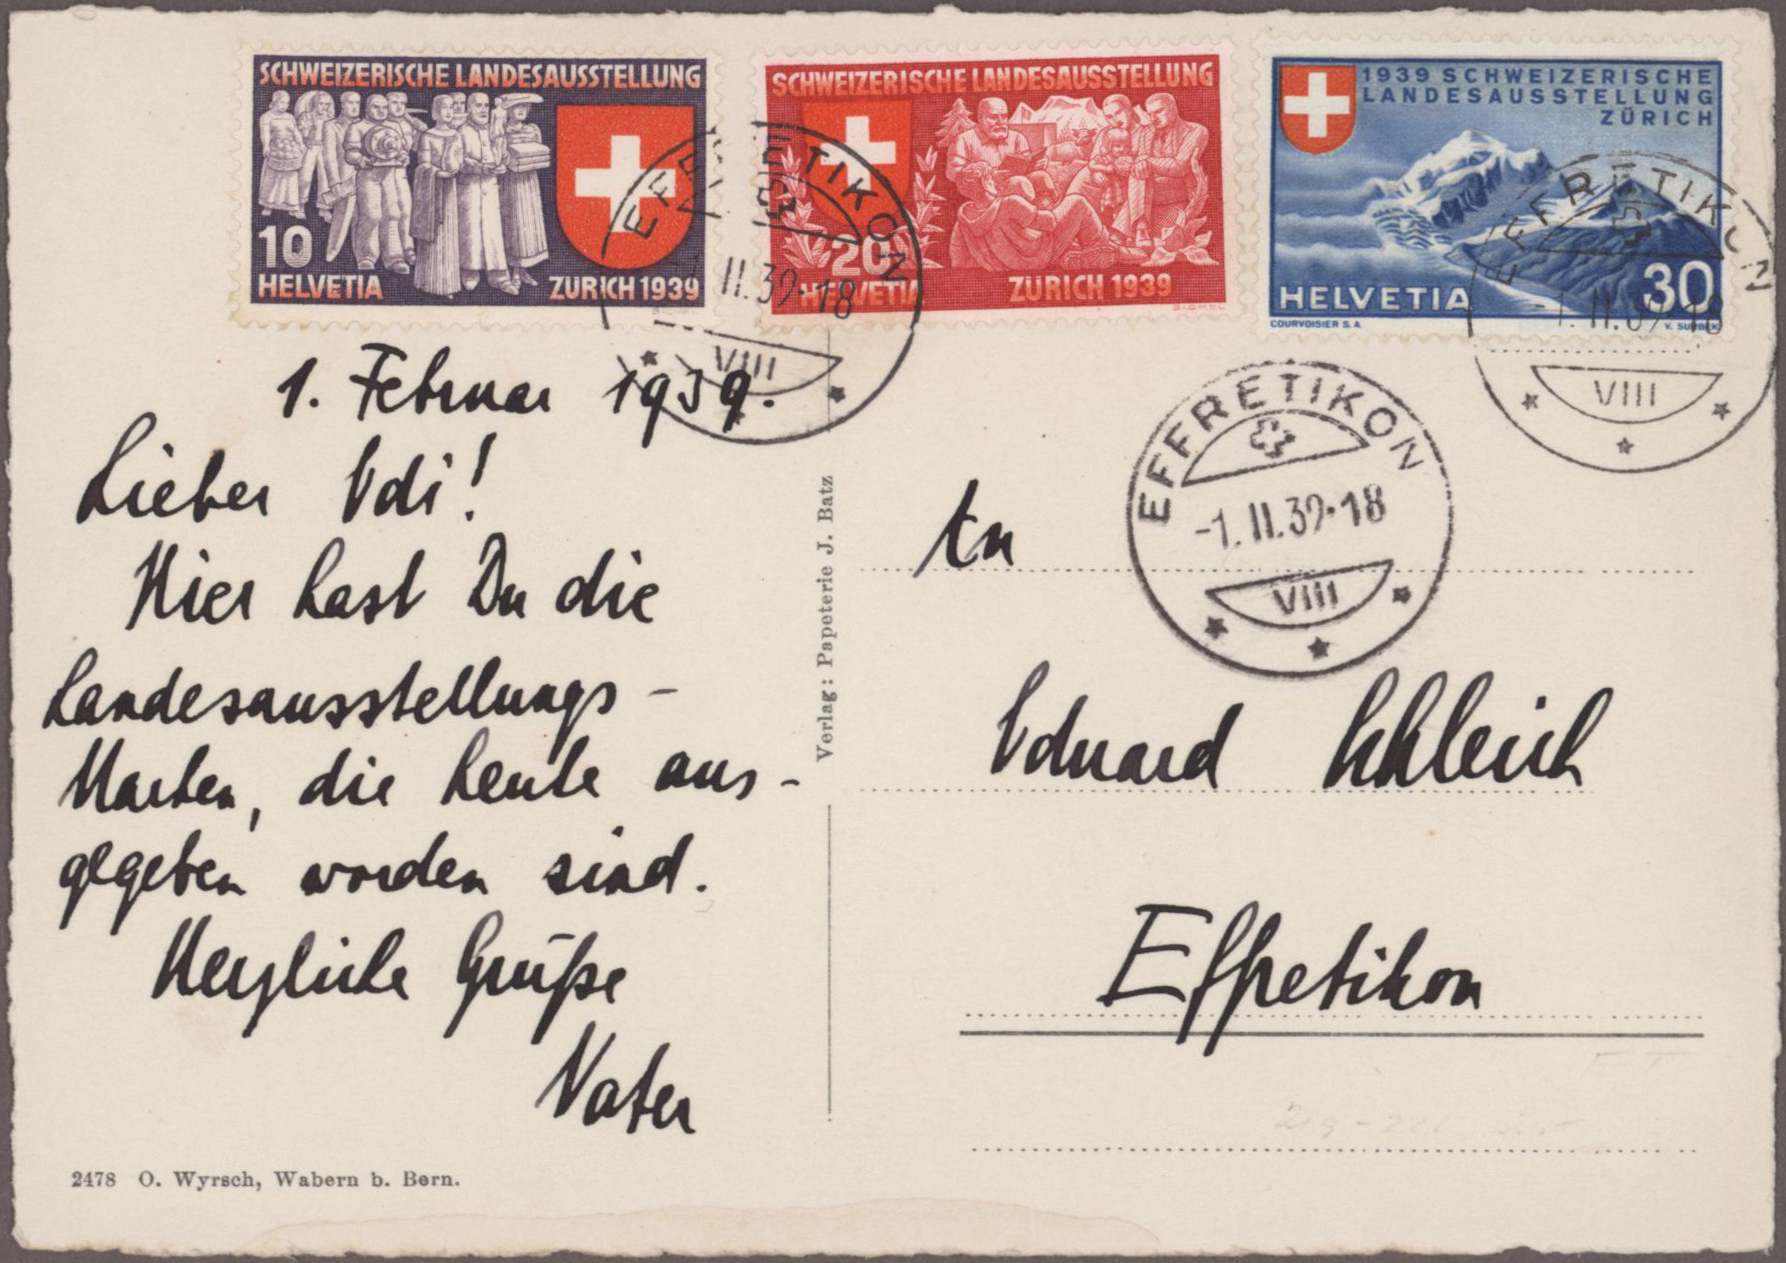 SCHWEIZERISCHE LANDESAUSSTELLUNG
10
HELVETIA
ZURICH 1939
SCHWEIZERISCHE LANDESAUSSTELLUNG
20
HELVETIA
ZÜRICH 1939
BICKEL
1939 SCHWEIZERISCHE
LANDESAUSSTELLUNG
ZÜRICH
HELVETIA
30
COURVOISIER S.A.
V. SURBEK
EFFRETIKON
-1. II. 39-18
VIII
EFFRETIKON
-1. II. 39-18
VIII
EFFRETIKON
-1. II. 39-18
VIII
1. Februar 1939.
Lieber Edi!
Hier hast Du die
Landesausstellungs-
Marken, die heute aus-
gegeben worden sind.
Herzliche Grüße
Vater
Verlag: Papeterie J. Batz
An
Eduard Schleich
Effretikon
2478 O. Wyrsch, Wabern b. Bern.